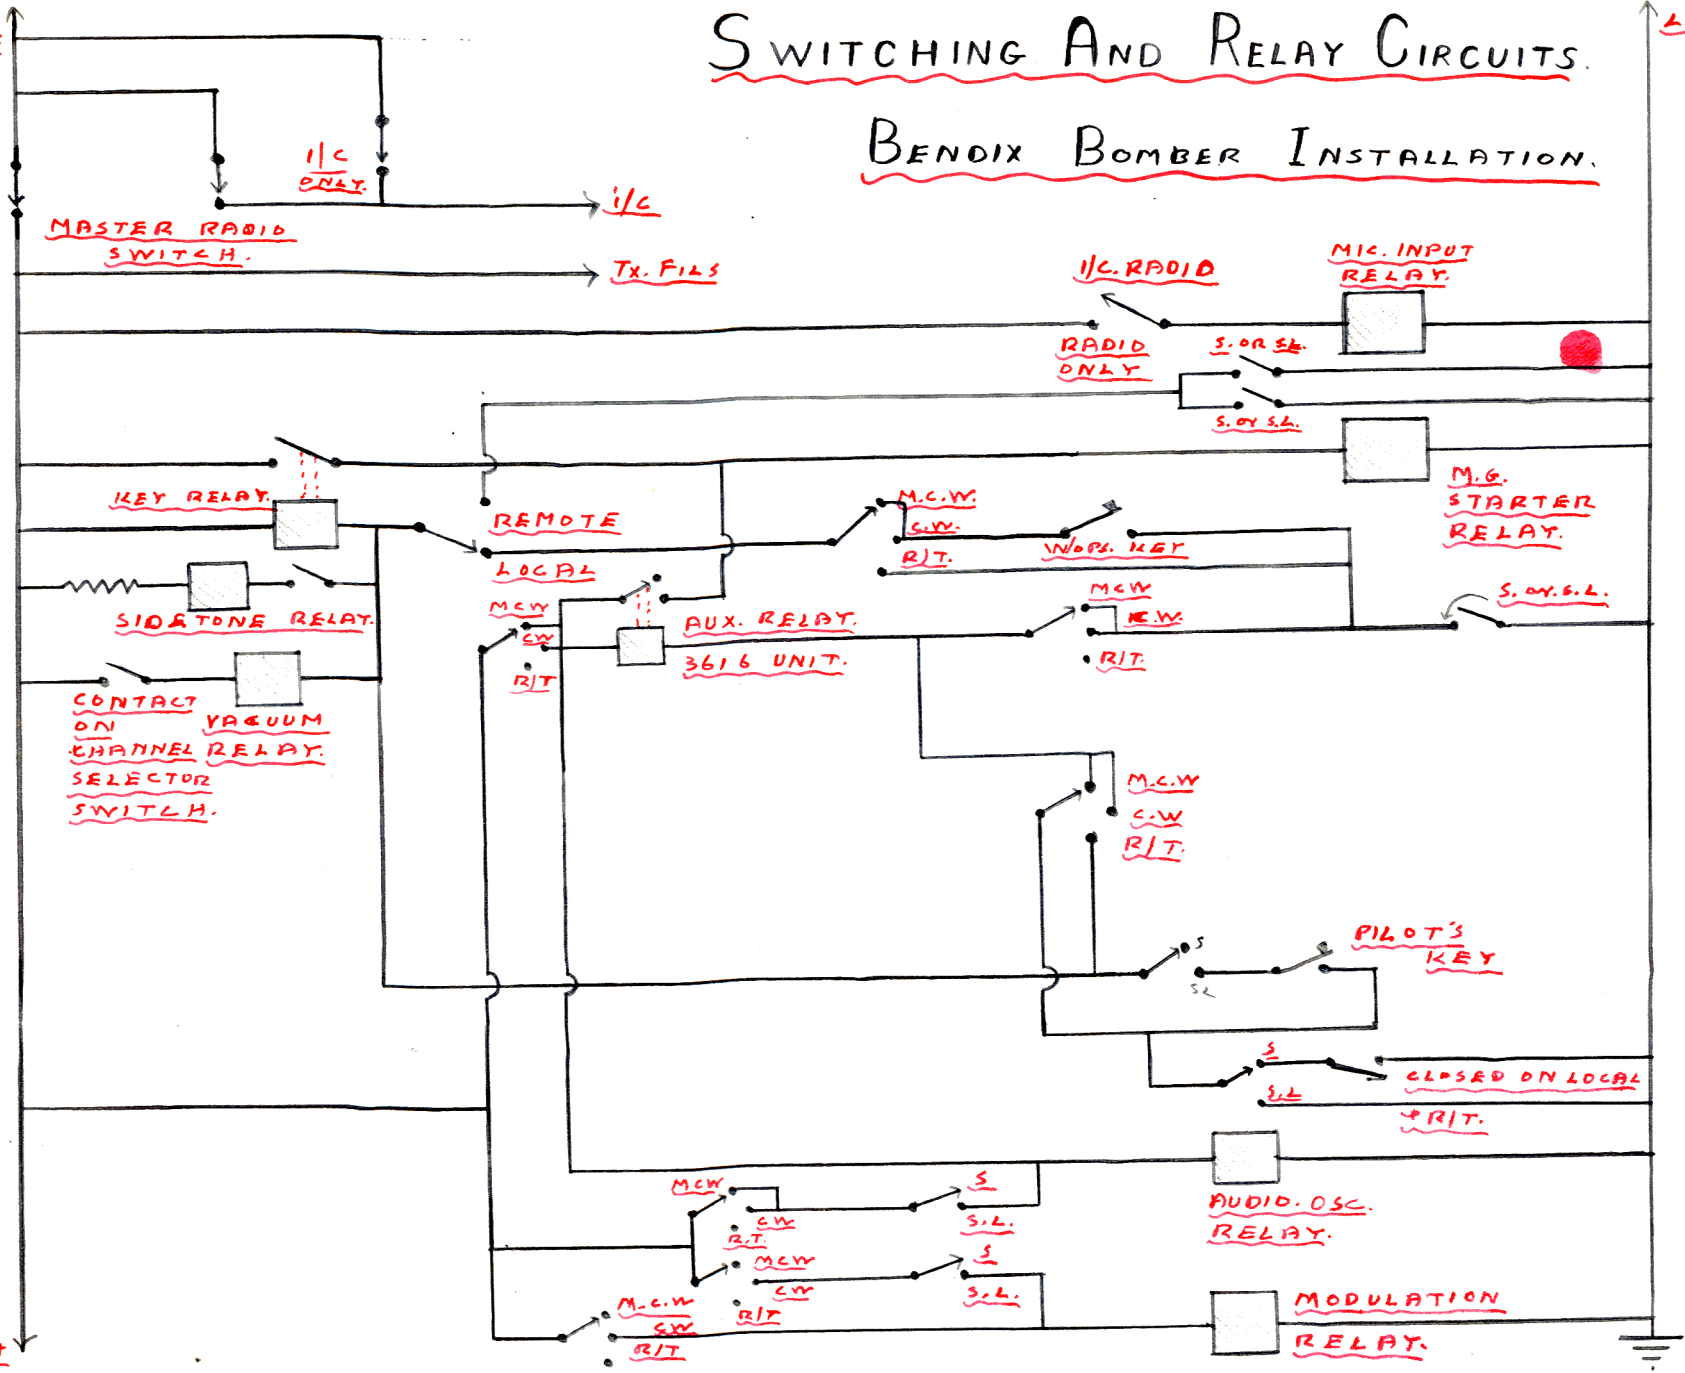 SWITCHING AND RELAY CIRCUITS.
BENDIX BOMBER INSTALLATION.
I/C
ONLY.
i/C
MASTER RADIO
SWITCH.
TX. FILS
I/C. RADIO
MIC. INPUT
RELAY.
RADIO
ONLY
S. OR SL.
S. or S.L.
KEY RELAY.
REMOTE
LOCAL
M.C.W.
C.W.
R/T.
W/OPS. KEY
M.G.
STARTER
RELAY.
SIDETONE RELAY.
MCW
CW
R/T
AUX. RELAY.
3616 UNIT.
MCW
C.W.
R/T.
S. or S.L.
CONTACT
ON
CHANNEL
SELECTOR
SWITCH.
VACUUM
RELAY.
M.C.W
C.W
R/T.
S
SL
PILOT'S
KEY
S
S.L
CLOSED ON LOCAL
+ R/T.
MCW
CW
R.T.
S
S.L.
AUDIO. OSC.
RELAY.
MCW
CW
R/T
S
S.L.
M.C.W
CW
R/T
MODULATION
RELAY.
L